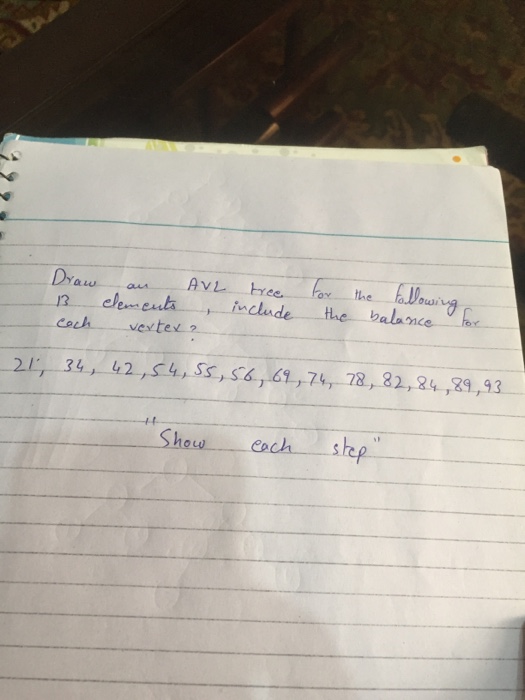 Draw an AVL tree for the following
13 elements, include the balance for
each vertex?
21, 34, 42, 54, 55, 56, 69, 74, 78, 82, 84, 89, 93
"Show each step"